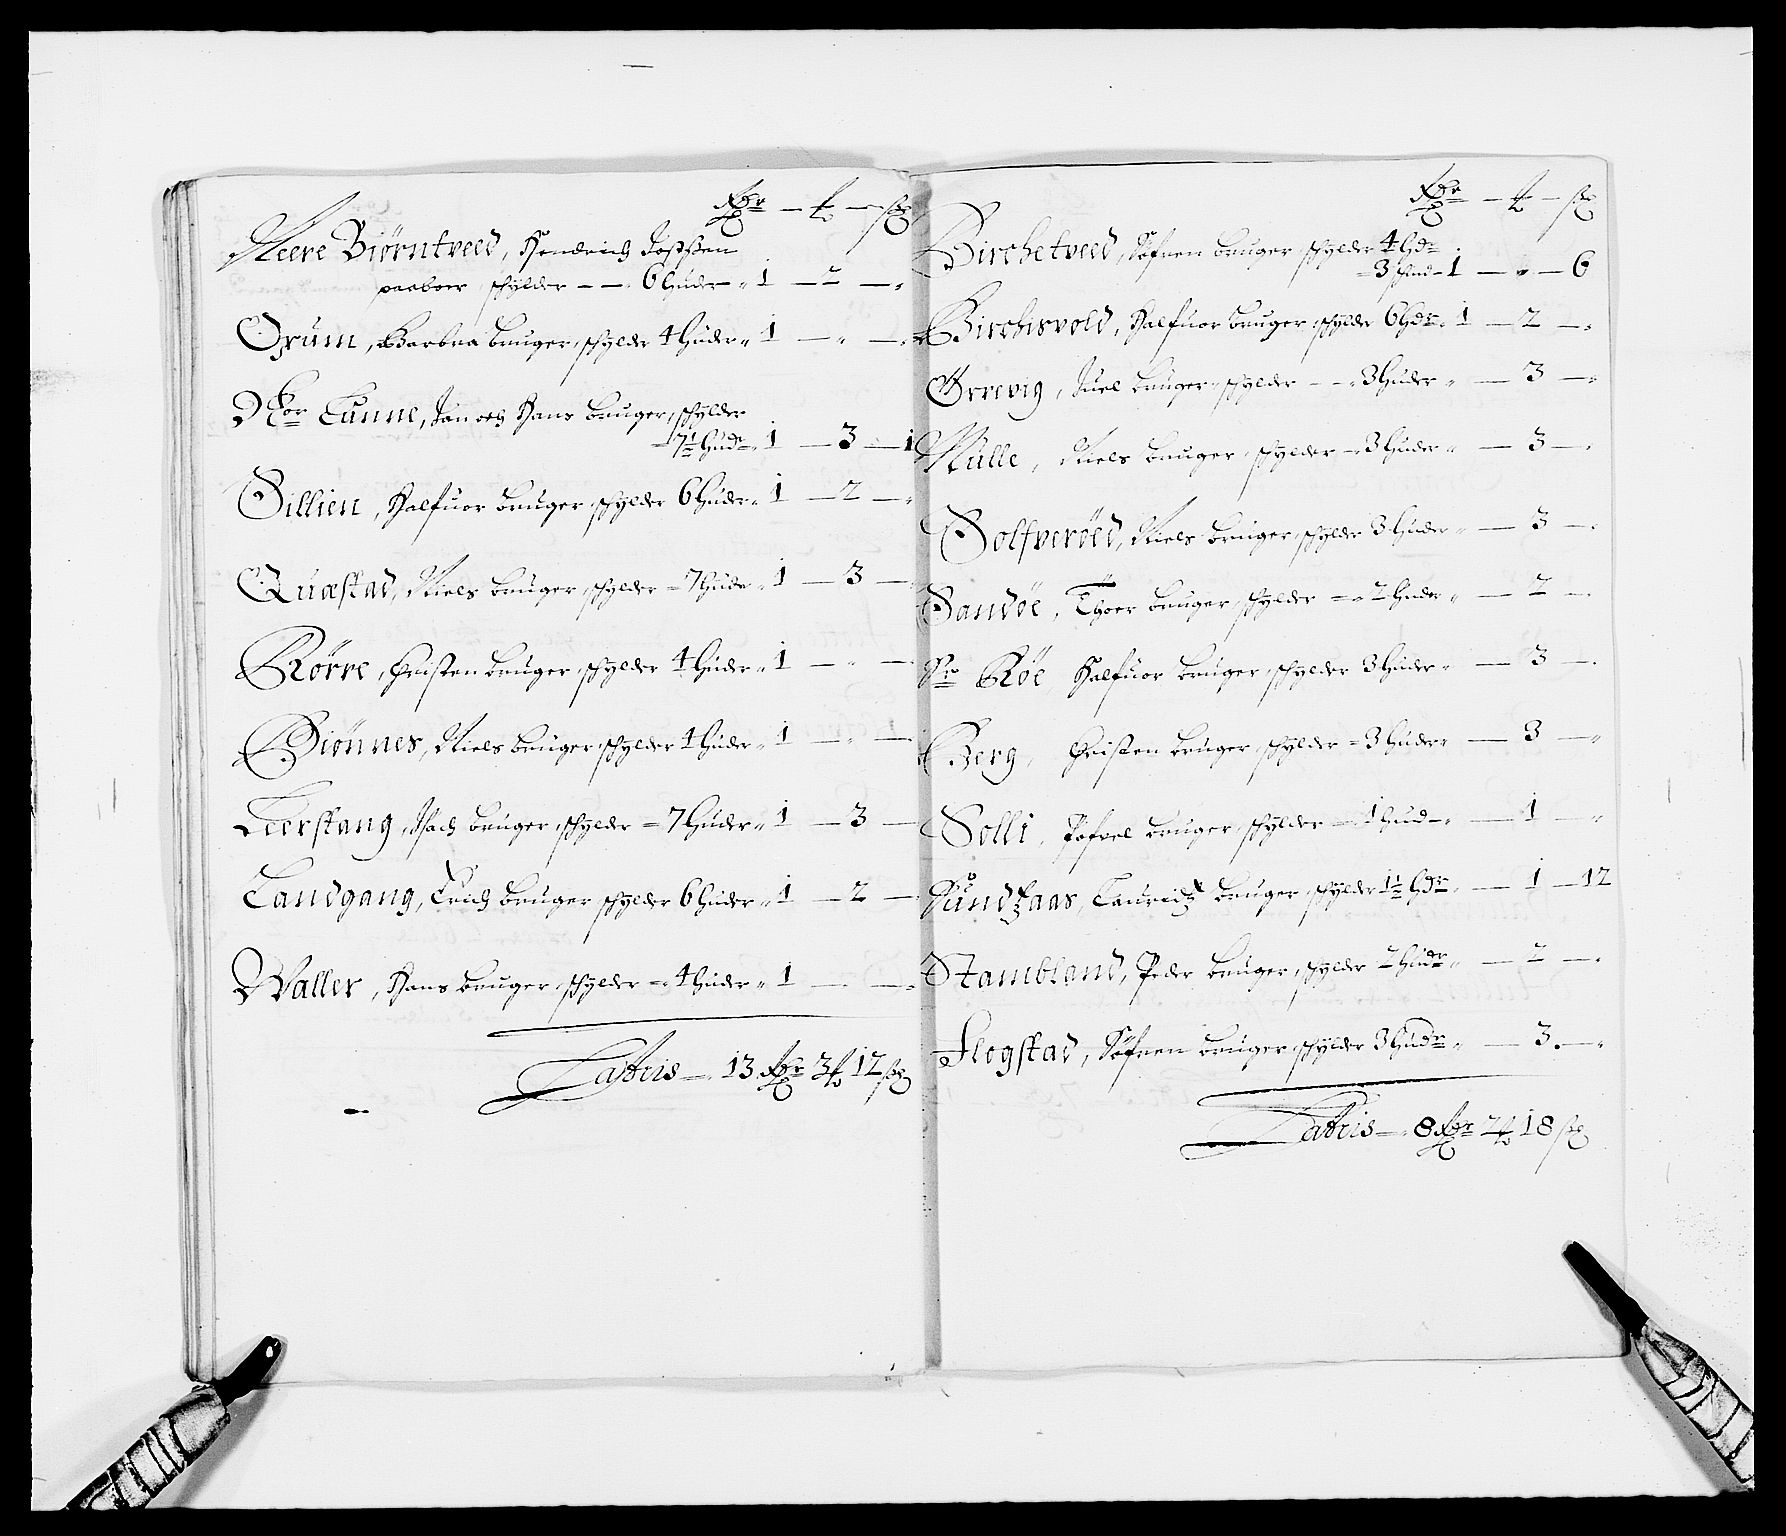 Rdr — ƒ — sk
Neere Biørntveed, Hendrich Joßßen
paaboer schylder — — 6 huder „ 1 — 2 — „
Ørum, Barbra bruger, schylder 4 huder „ 1 — „ — „
Nor Lunne, Jan och Hans bruger, schylder
7½ hudr „ 1 — 3 — 1
Sillien, Halfuor bruger schylder 6 huder „ 1 — 2 — „
Quæstad, Niels bruger schylder = 7 hude „ 1 — 3 —
Rørre, Christen bruger, schylder 4 huder „ 1 — „ —
Biønnes, Niels bruger schylder 4 huder „ 1 — „ —
Leerstang, Isach bruger, schylder = 7 huder „ 1 — 3 —
Landgang, Erich bruger schylder 6 huder „ 1 — 2 —
Waller, Hans bruger schylder = 4 huder „ 1 — — „
Latris — 13 Rdr 3 ƒ 12 sk
Rdr — ƒ — sk
Birchetveed, Søfren bruger schylder 4 hdr
= 3 schind = 1 — „ — 6
Birchisvold, Halfuor bruger schylder 6 hdr „ 1 — 2 — „
Ørrevig, Juel bruger schylder — „ 3 huder „ — 3 — „
Mülle, Niels bruger, schylder = 3 huder „ — 3 — „
Solfverøed, Niels bruger schylder 3 huder „ — 3 — „
Sandøe, Thoer bruger, schylder = 2 huder „ — 2 — „
Nr Røe Halfuor bruger schylder 3 huder „ — 3 — „
Berg, Christen bruger, schylder = 3 huder „ — 3 — „
Solli, Pofvel bruger schylder — 1 hud „ — 1 — „
Sundzaas, Lauridz bruger schylder 1½ hdr „ — 1 — 12
Stambland, Peder bruger, schylder 2 hudr „ — 2 — „
Flogstad, Søfren bruger schylder 3 hudr „ — 3. — „
Latris — 8 Rdr 2 ƒ 18 sk